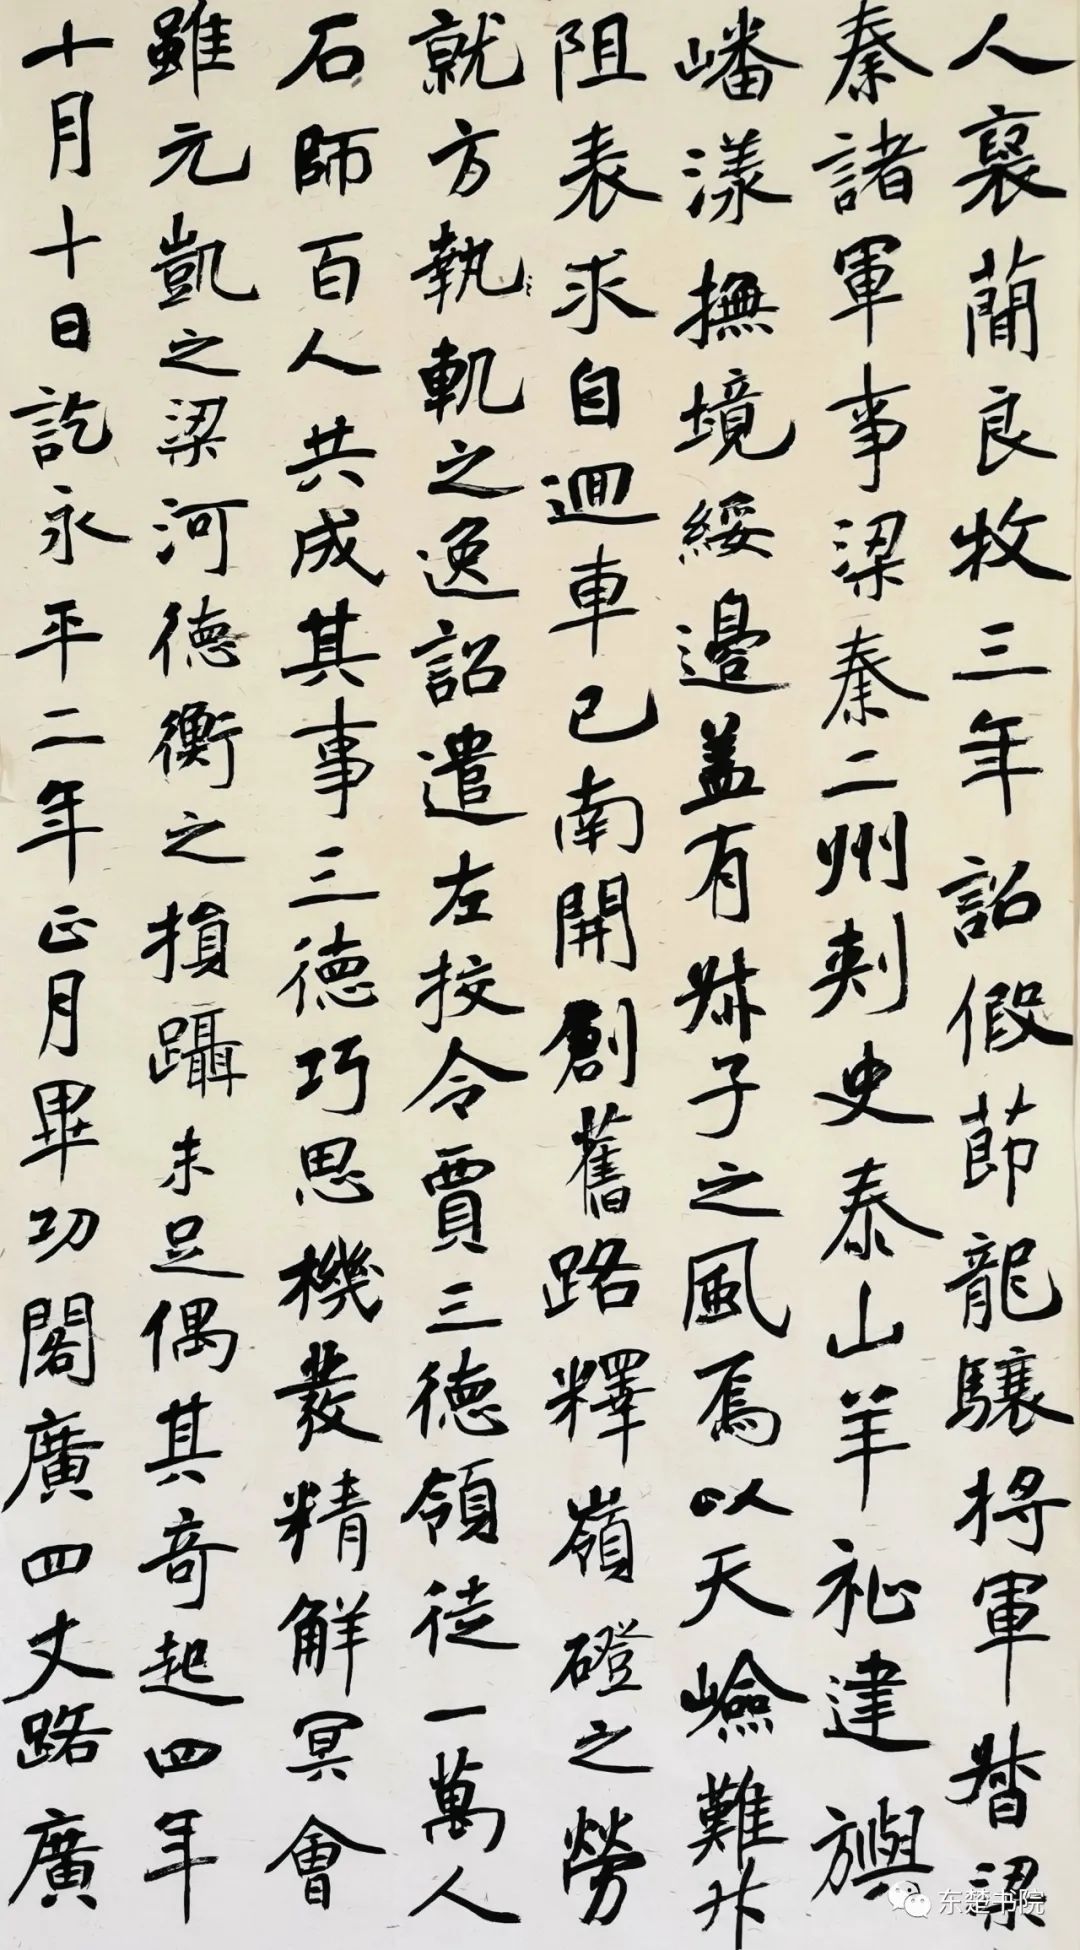 人襃蕳良牧三年詔假節龍驤将軍督梁
秦諸軍事梁秦二州刾史泰山羊祉建旟
嶓漾撫境綏邊盖有叔子之風焉以天嶮難升
阻表求自迴車已南開創舊路釋嶺磴之勞
就方執軌之逸詔遣左挍令賈三德領徒一萬人
石師百人共成其事三德巧思機發精解冥會
雖元凱之梁河德衡之損躡未足偶其奇起四年
十月十日訖永平二年正月畢功閣廣四丈路廣
东楚书院